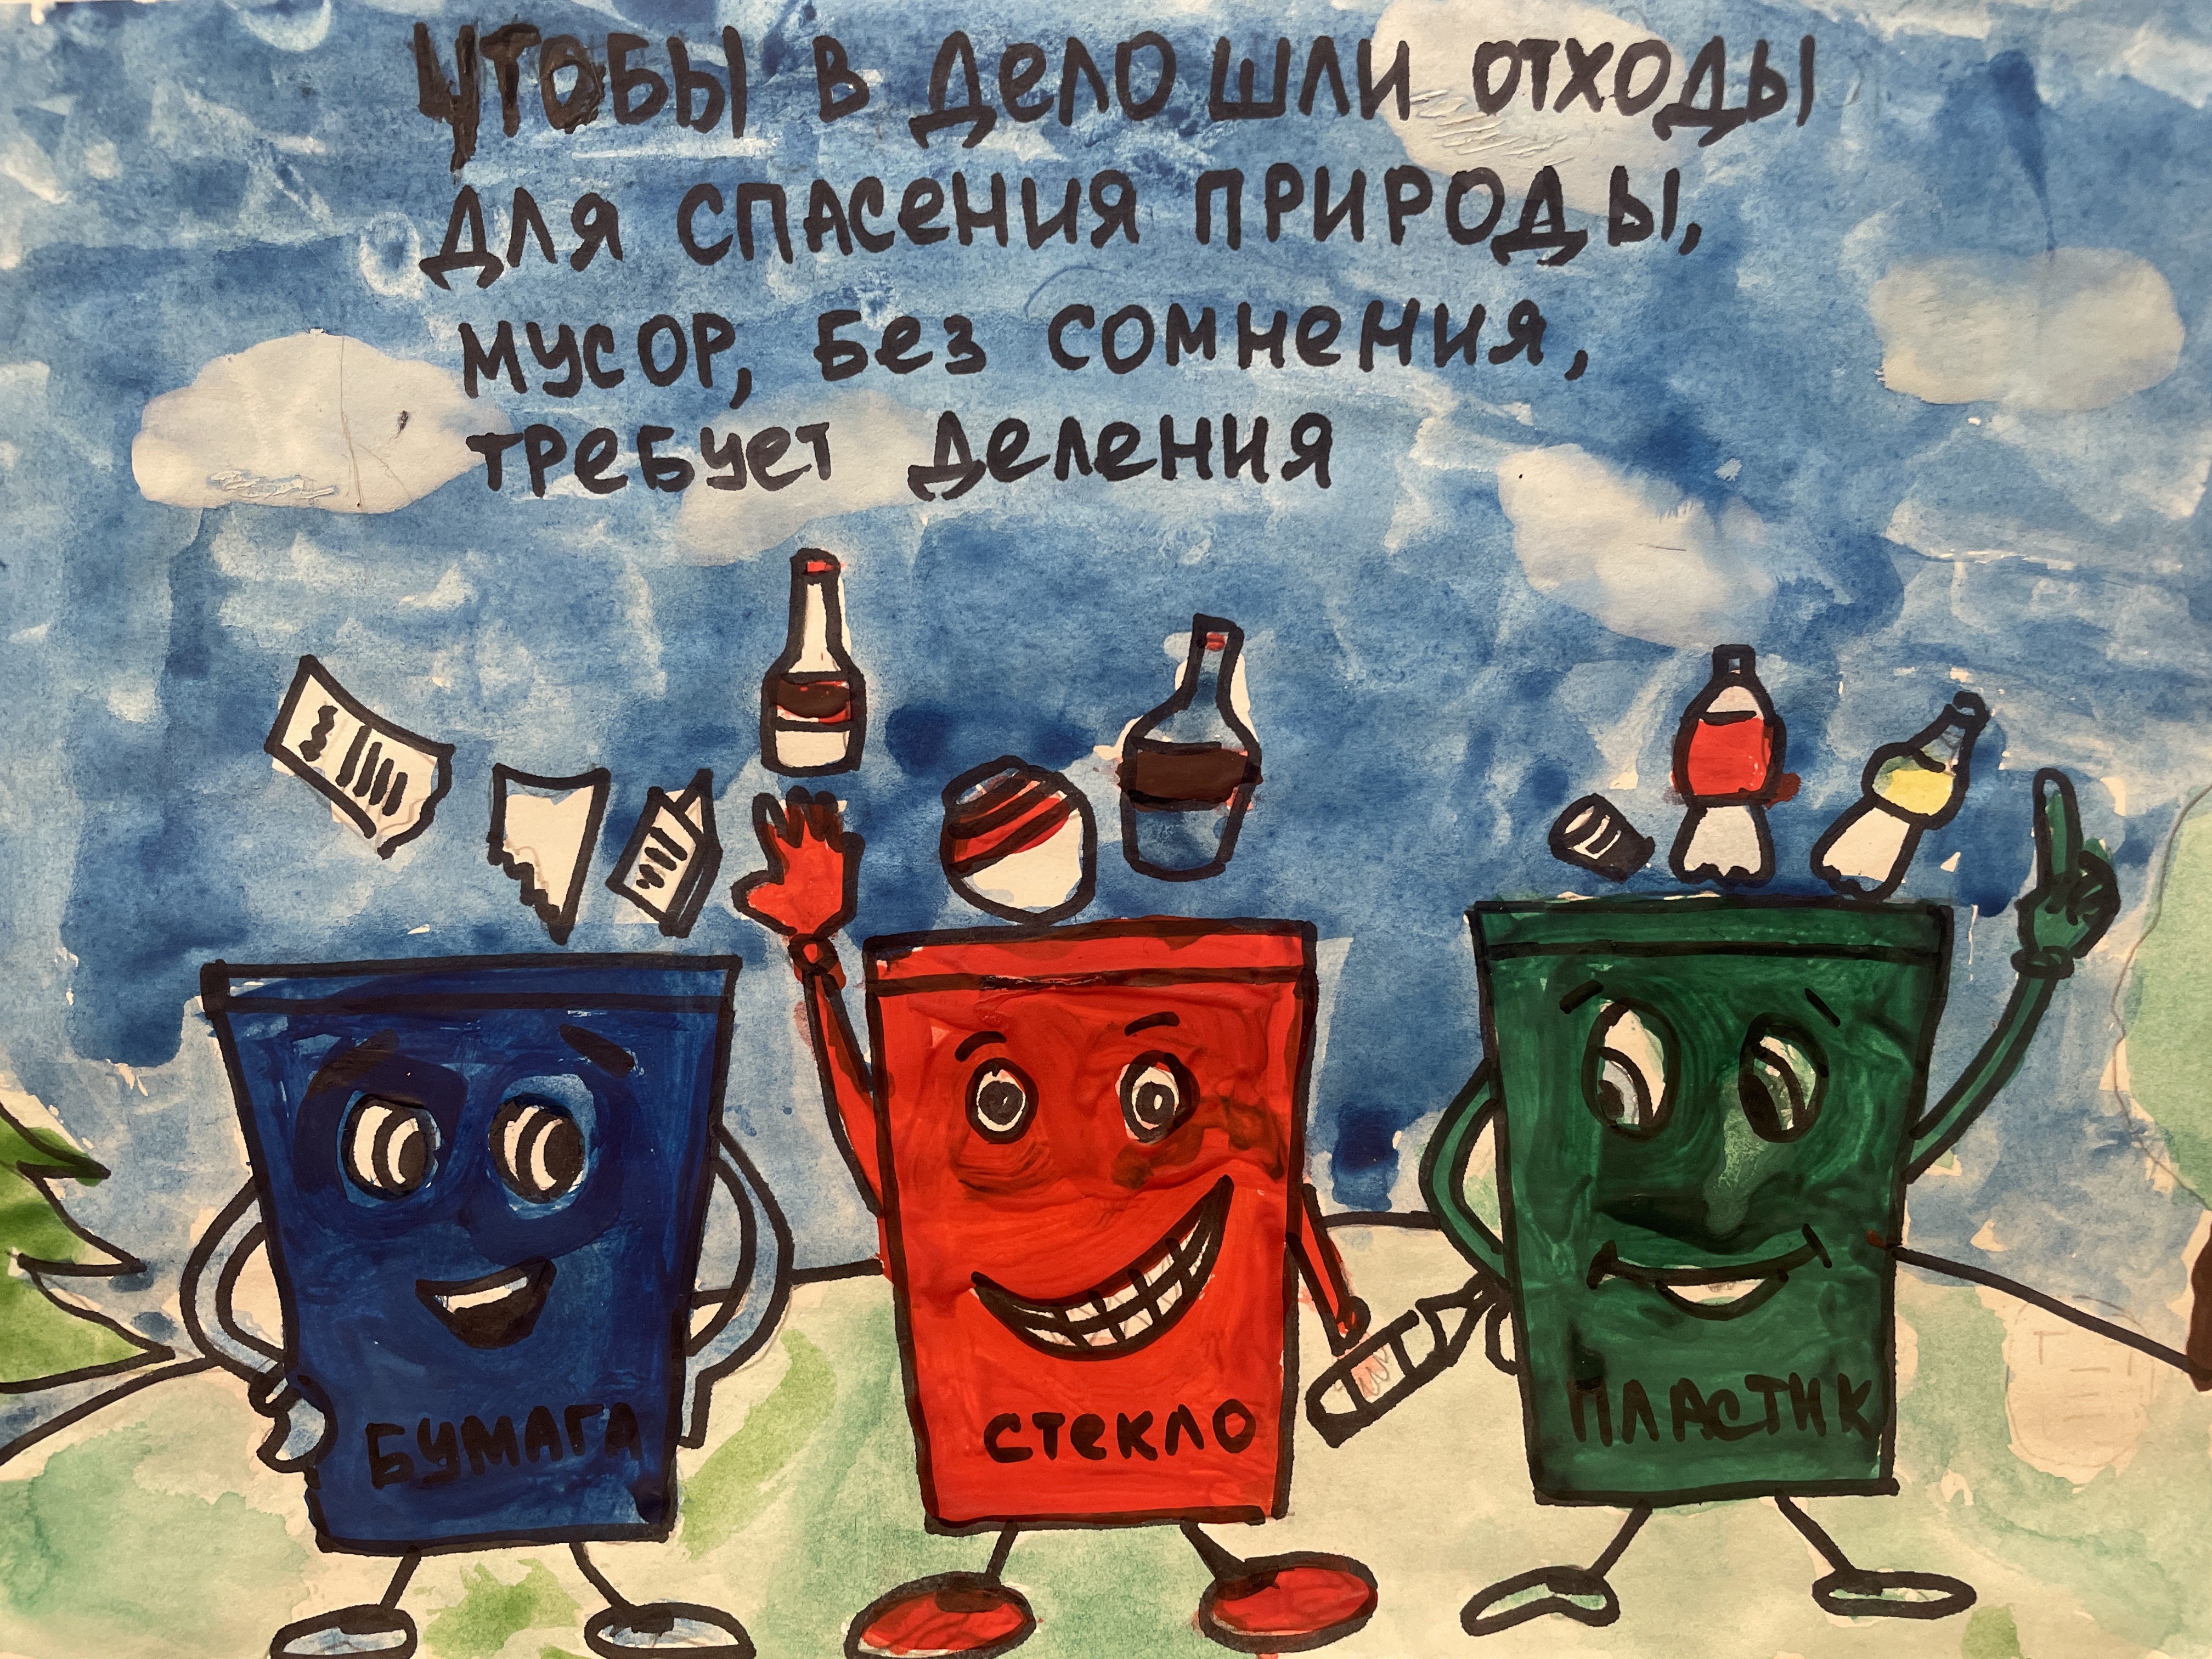 Чтобы в дело шли отходы
для спасения природы,
мусор, без сомнения,
требует деления
БУМАГА
СТЕКЛО
ПЛАСТИК